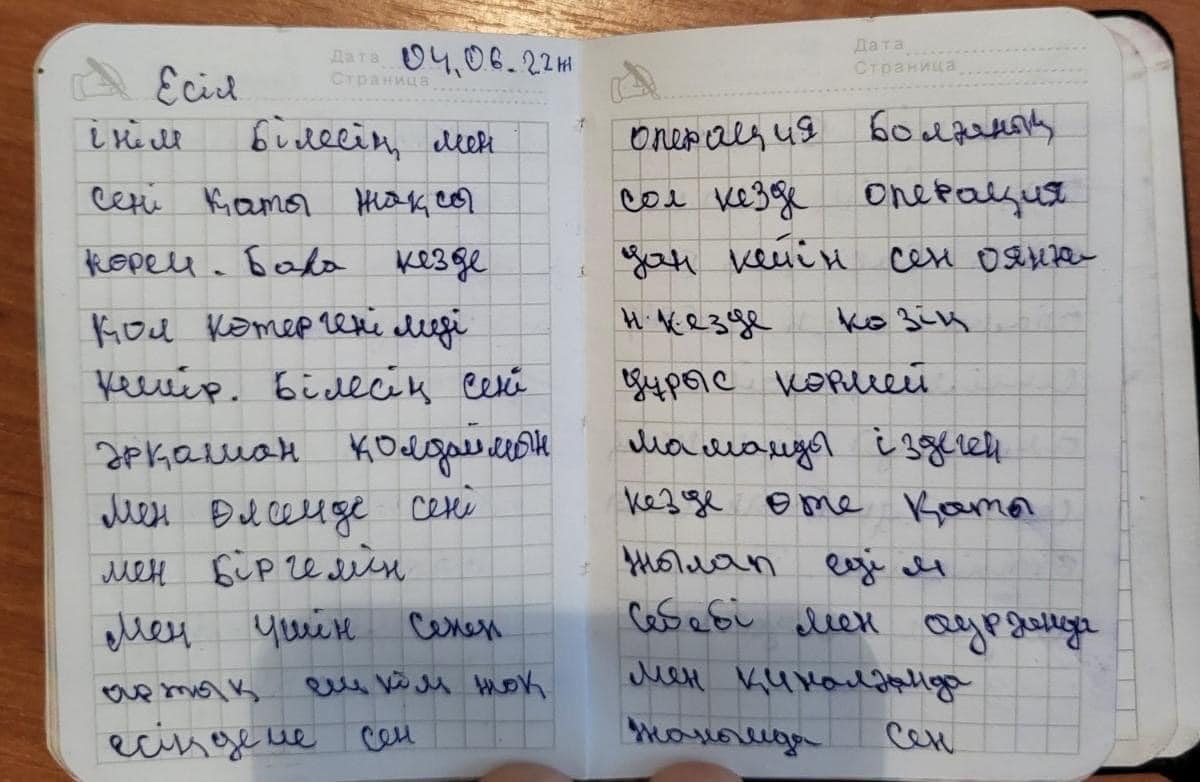 Дата 04.06.22ж
Страница
Есіл
інім білесің мен
сені қаты жақсы
көрем. Бала кезде
қол көтергенімді
кешір. Білесің сені
әрқашан қолдаймын
мен өлсемде сені
мен біргемін
Мен үшін сенен
артық ешкім жоқ
есіңдеме сен
Дата
Страница
операция болғаның
сол кезде операция
дан кейін сен оянға
н.кезде көзің
дұрыс көрмей
мамамды іздеген
кезде өте қаты
жылап едім
себебі мен ауырғанда
мен қиналғанда
жанымда сен